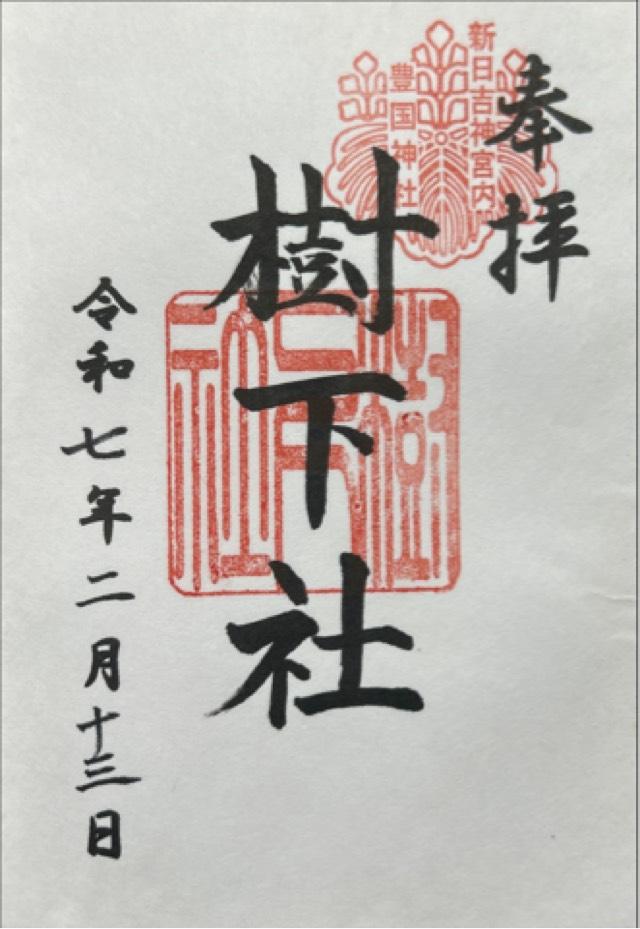 奉拝
新日吉神宮内
豊国神社
樹下社
樹下社
令和七年二月十三日